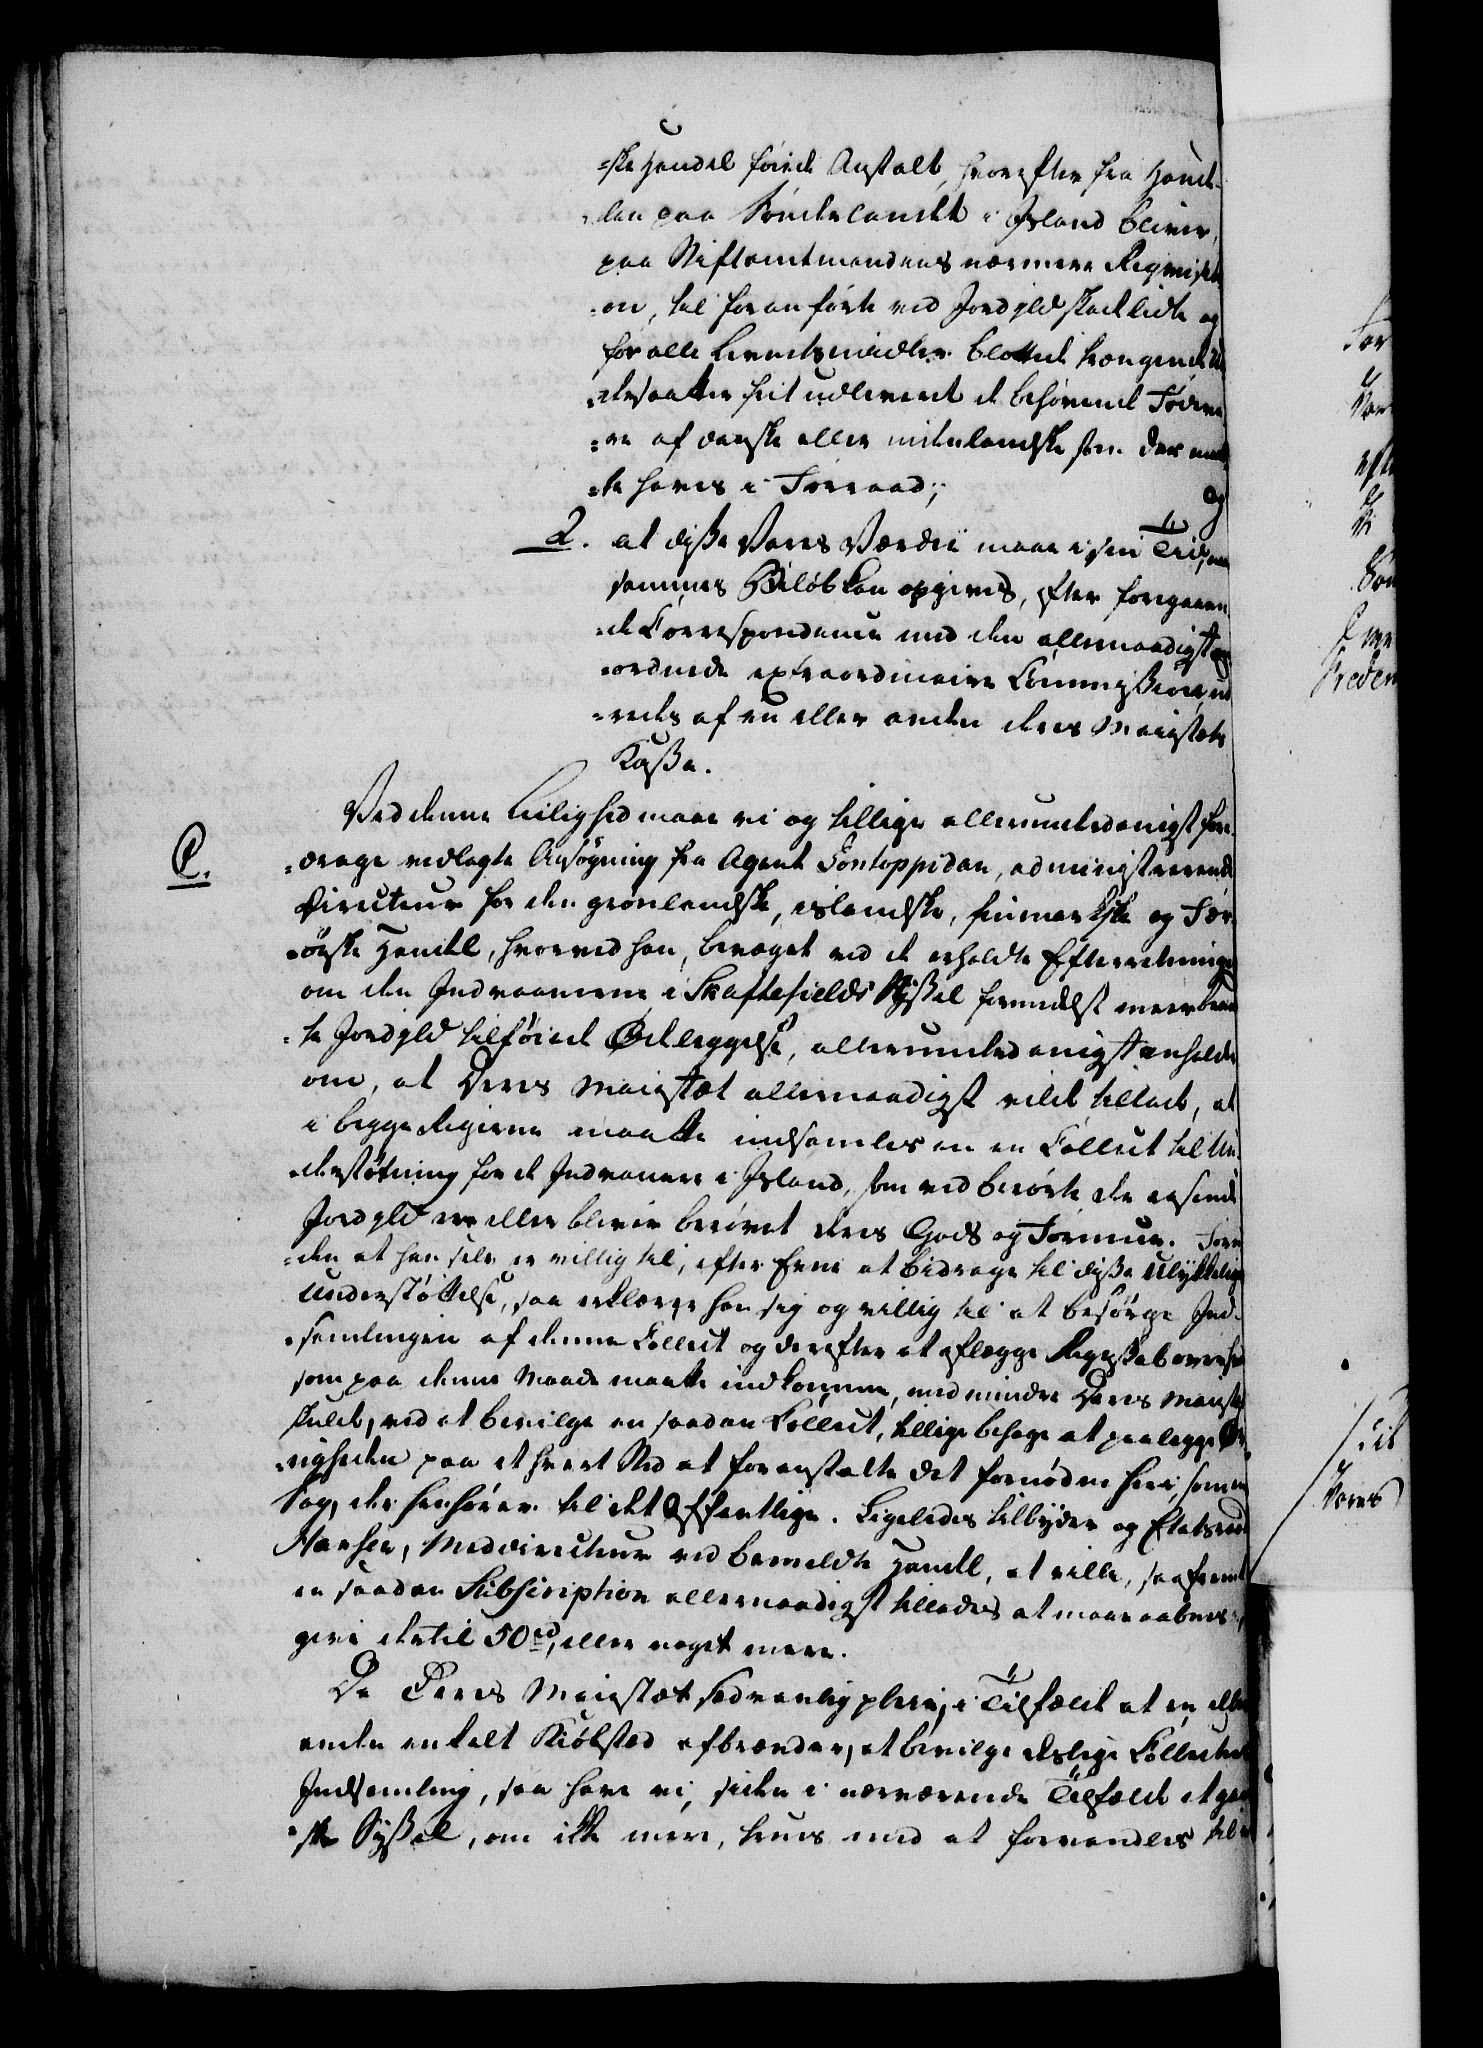 =ske Handel føiede Anstalt, hvorefter fra Hand-
=len paa Sønderlandet i Island bliver,
paa Stiftamtmandens nærmere Reqvisiti
=on, til foranførte ved Jordild skadlidte og
for alle Levnetsmidler blottede trængende Un
=dersaatter frit udleveret de behøvende Fødeva
=re af danske eller inden landske som der maat
=te haves i Forraad; og
2. at disse Vares Værdie maae i sin Tiid, naar
sammes Beløb kan opgives, efter foregaaen
=de Correspondence med den allernaadigst an
=ordnede extraordinaire Commission, ud
=redes af en eller anden Deres Majestæts
Kasse.
Ved denne Leilighed maae vi og tillige allerunderdanigst fore
C.
=drage vedlagte Ansøgning fra Agent Pontoppidan, administrerende
Directeur for den grønlandske, islandske, finmarkske og Fær
=øiske Handel, hvorved han, bevæget ved de erholdte Efterretninger
om den Indvaanerne i Skaftefields Syssel formedelst meerbemeld
=te Jordild tilføiede Ødeleggelse, allerunderdanigst anholder
om, at Deres Majestæt allernaadigst vilde tillade, at
i begge Rigerne maatte indsamles en en Collect til Un
=derstøtning for de Indvaanere i Island, som ved berørte der rasende
Jordild ere eller blive berøvet deres Gods og Formue. Foru
=den at han selv er villig til, efter Evne at bidrage til disse ulykkelige
Understøttelse, saa erklærer han sig og villig til at besørge Ind-
=samlingen af denne Collect og derefter at aflægge Regnskab over hvad
som paa denne Maade maatte indkomme, med mindre Deres Majestæt
skulde, ved at bevilge en saadan Collect, tillige behage at paalegge Øv
=righeden paa et hvert Sted at foranstalte det fornødne heri, som en
Sag, der henhører til det Offentlige. Ligeledes tilbyder og Etatsraad
Hansen, Meddirecteur ved bemeldte Handel, at ville, saafremt
en saadan Subscription allernaadigst tillades at maae aabnes,
give dertil 50 rd, eller noget mere.
Da Deres Majestæt sædvanlig pleier, i Tilfælde at en eller
anden enkelt Kiøbsted afbrænder, at bevilge deslige Collecters
Indsamling, saa have vi, siden i nærværende Tilfælde et gan
=ske Syssel, om ikke mere, trues med at forvandles til